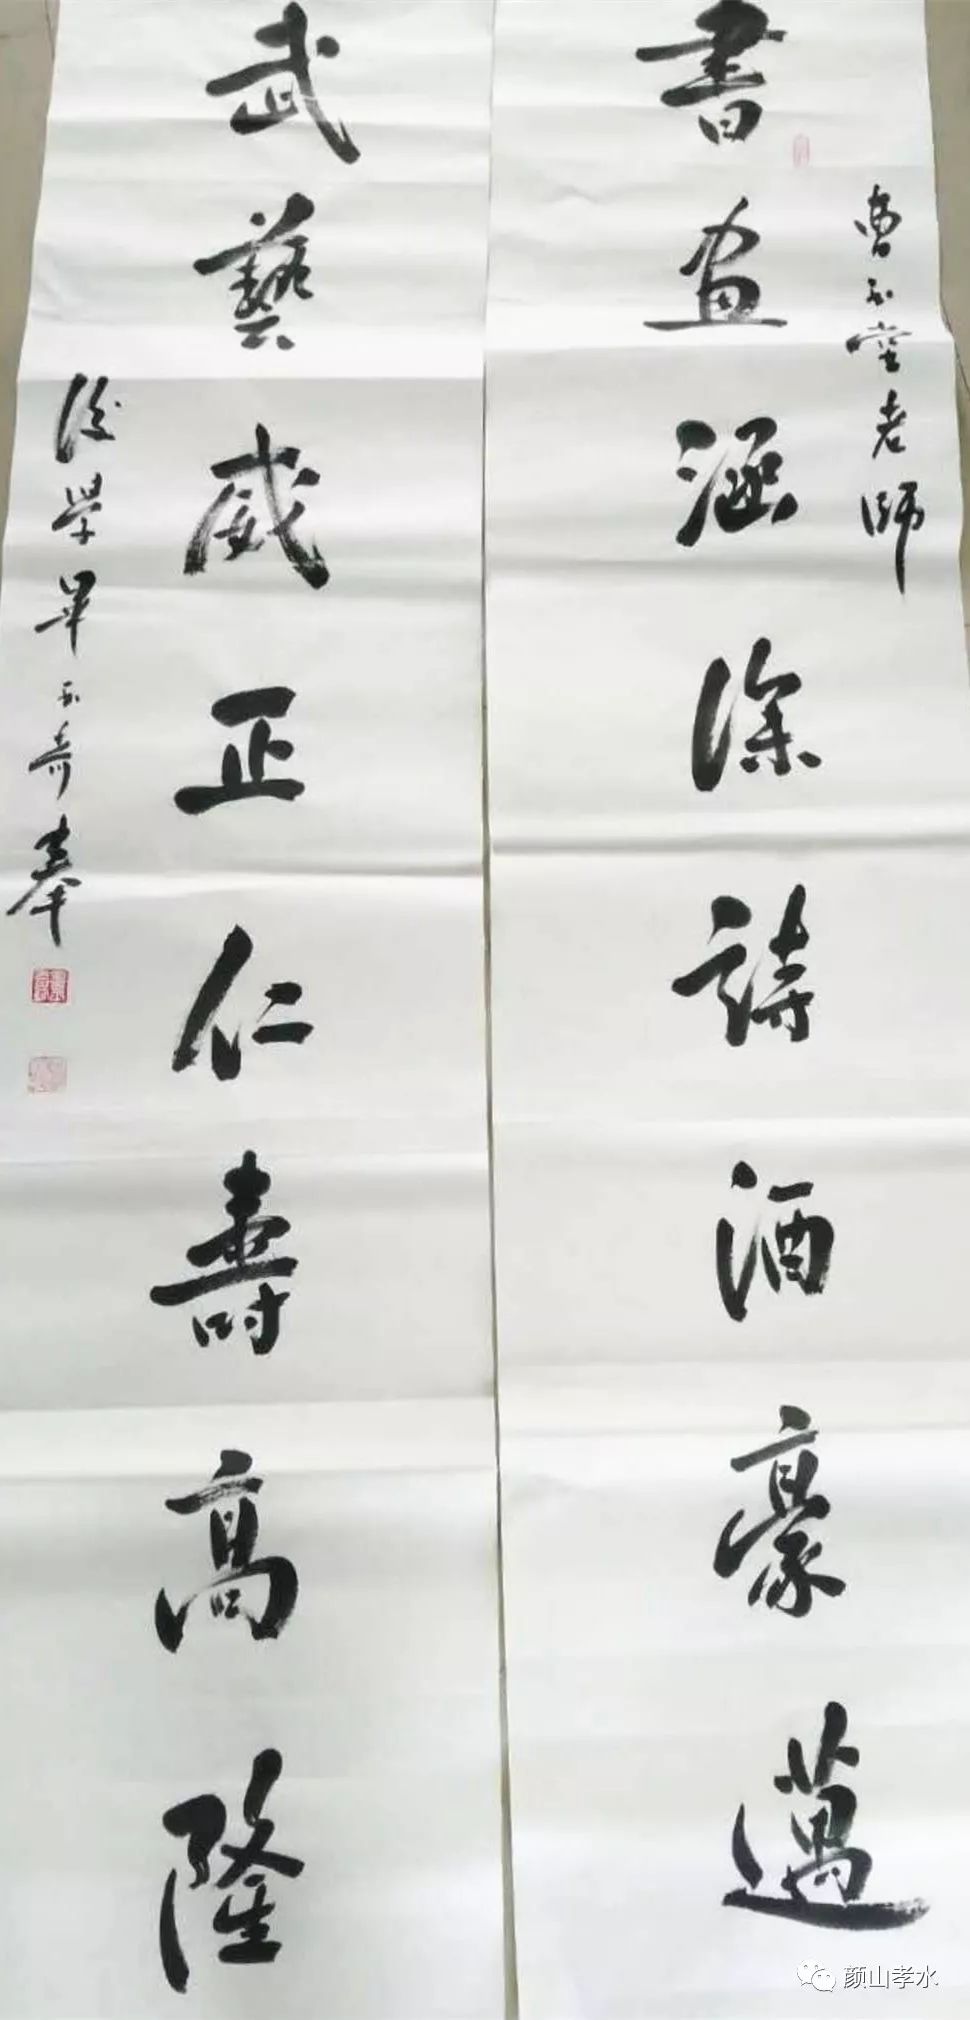 曹玉堂老師
書畫涵深詩酒豪邁
武藝威正仁壽高隆
後學畢玉奇奉
颜山孝水